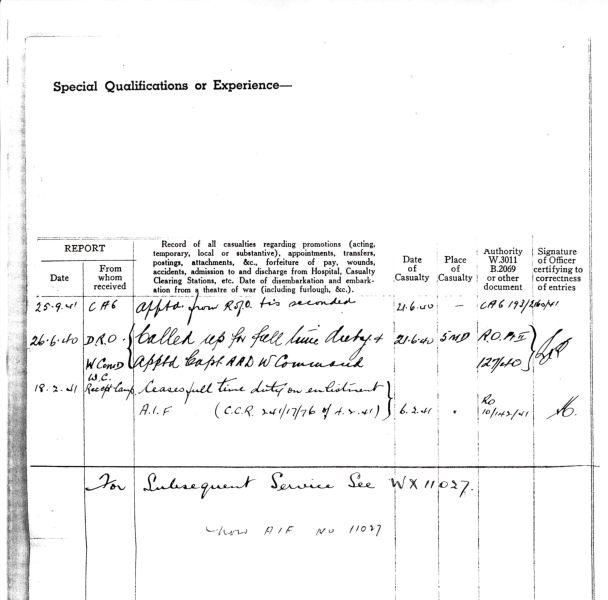 Special Qualifications or Experience—
REPORT
Date
From whom received
Record of all casualties regarding promotions (acting,
temporary, local or substantive), appointments, transfers,
postings, attachments, &c., forfeiture of pay, wounds,
accidents, admission to and discharge from Hospital, Casualty
Clearing Stations, etc. Date of disembarkation and embark-
ation from a theatre of war (including furlough, &c.).
Date of Casualty
Place of Casualty
Authority W.3011 B.2069 or other document
Signature of Officer certifying to correctness of entries
25.9.41 CAG apptd from R of O. tis seconded 21.6.40 —
26.6.40 D.R.O. Called up for full time duty & 21.6.40 5 MD R.O. Pt II
W Comd apptd Capt AAD W Command 127/40
W.C.
18.2.41 Recept Camp Ceases full time duty on enlistment RO
A.I.F (C.C.R. 241/17/76 of 4.2.41) 6.2.41 " 10/142/41
For Subsequent Service See WX 11027.
now AIF No 11027